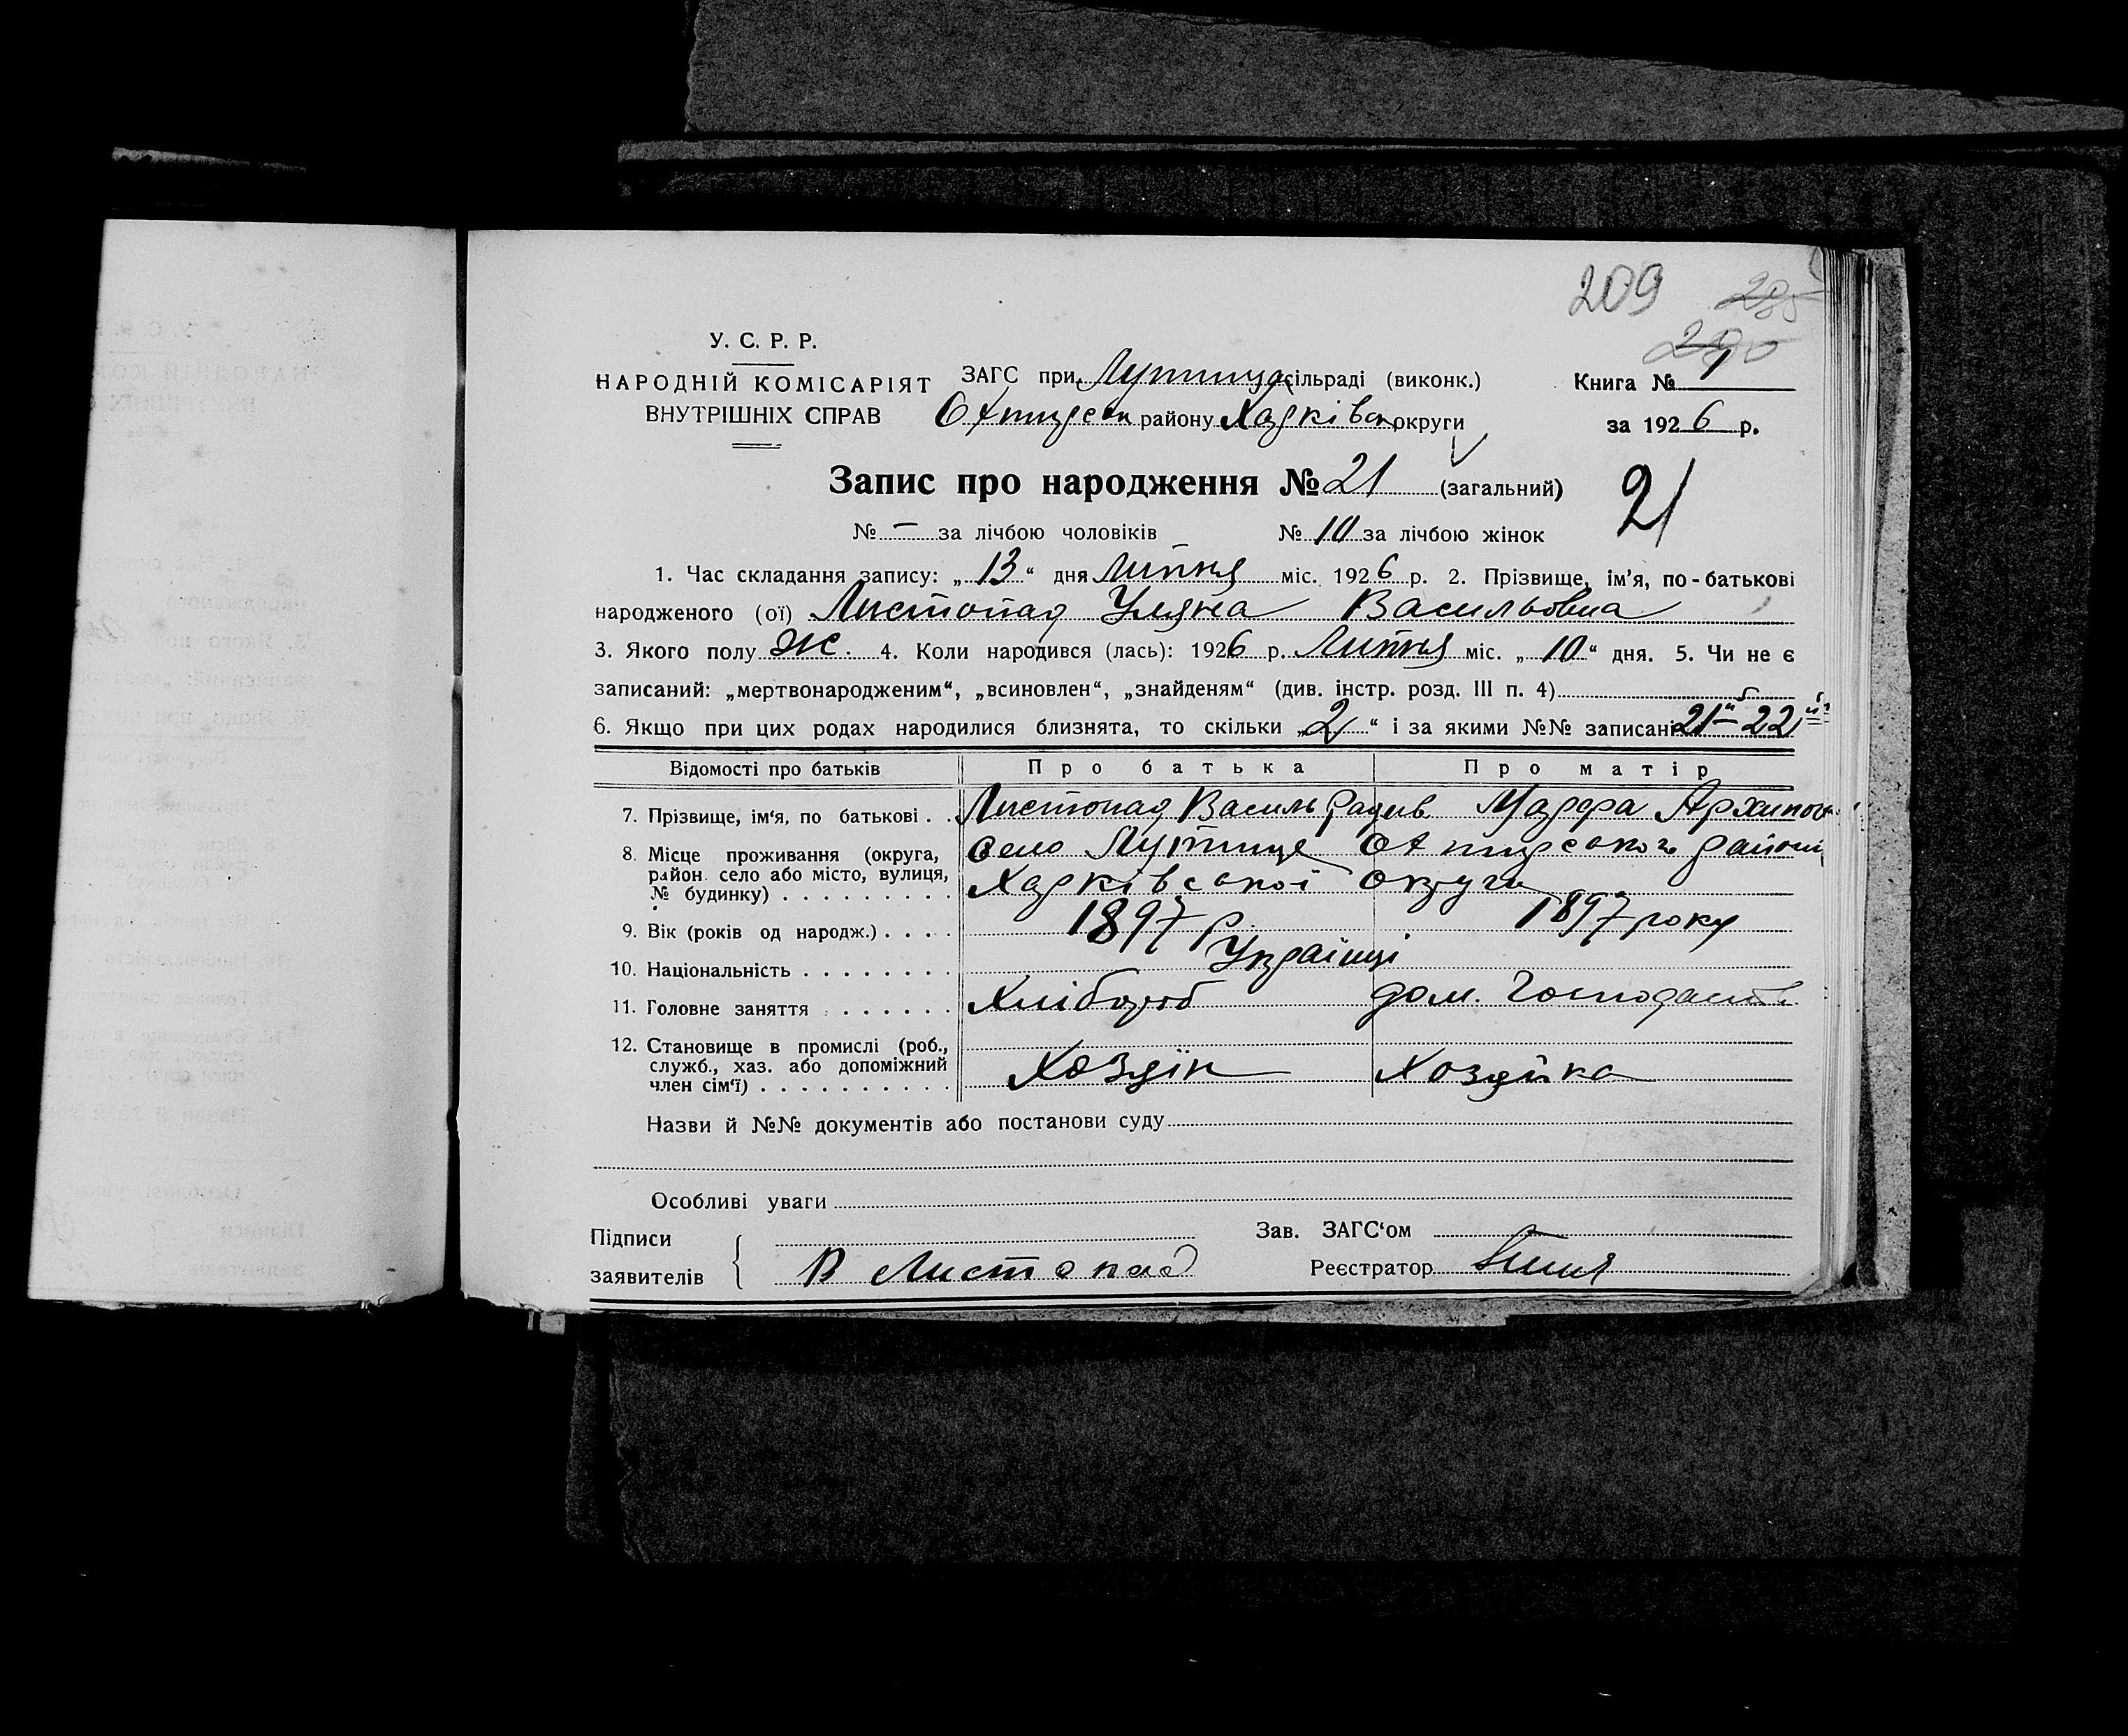 209
У. С. Р. Р.
НАРОДНІЙ КОМІСАРІЯТ
ВНУТРІШНІХ СПРАВ
ЗАГС при сільраді (виконк.)
району Харківськ округи
Книга № 1
за 1926 р.
Запис про народження № 21 (загальний)
21
№ — за лічбою чоловіків № 10 за лічбою жінок
1. Час складання запису: „13“ дня Липня міс. 1926 р. 2. Прізвище, ім’я, по-батькові
народженого (ої) Листопад Уляна Васильовна
3. Якого полу Ж. 4. Коли народився (лась): 1926 р. Липня міс. „10“ дня. 5. Чи не є
записаний: „мертвонародженим“, „всиновлен“, „знайденям“ (див. інстр. розд. III п. 4)
6. Якщо при цих родах народилися близнята, то скільки „2“ і за якими №№ записані 21й 22й
Відомості про батьків Про батька Про матір
7. Прізвище, ім‘я, по батькові . . Листопад Василь Марфа
8. Місце проживання (округа, Село Лутище Охтирського району
район. село або місто, вулиця,
№ будинку) . . . . . . . . . Харківської округи
9. Вік (років од народж.) . . . . 1897 р. 1897 року
10. Національність . . . . . . . . Українці
11. Головне заняття . . . . . . . Хлібороб дом. Господаств
12. Становище в промислі (роб.,
служб., хаз. або допоміжний Хозяїн Хозяйка
член сім‘ї) . . . . . . . . . .
Назви й №№ документів або постанови суду
Особливі уваги
Підписи
заявителів В Листопад
Зав. ЗАГС‘ом
Реєстратор